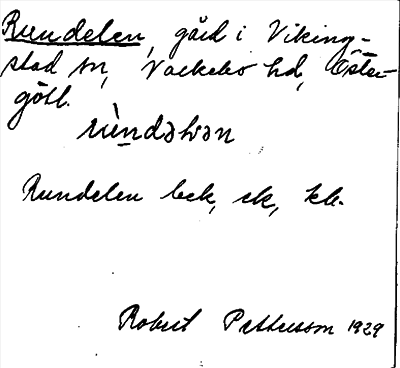 Rundelen, gård i Viking-
stad sn, Valkebo hd, Öster-
götl.
Rundelen bek, ek, kk.
Robert Pettersson 1929